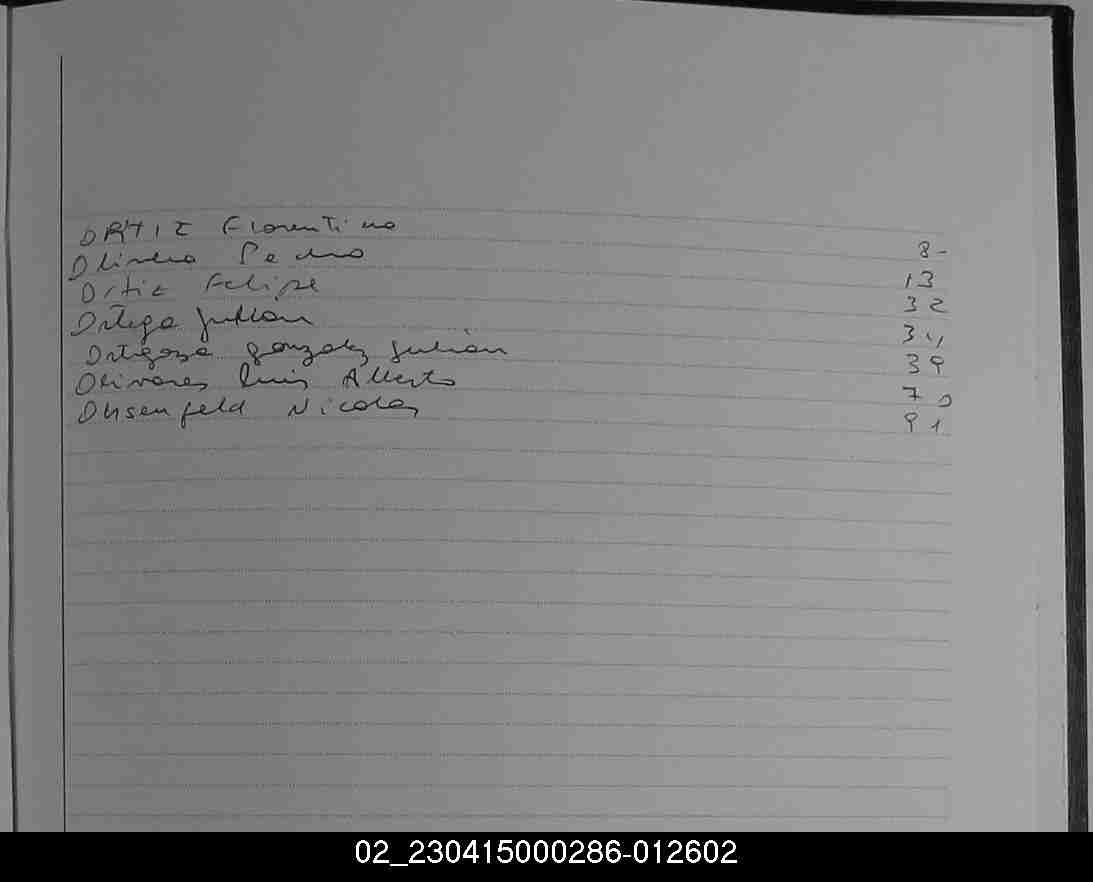 ORTIZ Florentino 8-
Olindo Pedro 13
Ortiz Felipe 32
Ortega Julian 34
Ortigoza Gonzalez Julian 39
Olivares Luis Alberto 70
Ohsenfeld Nicolas 91
02_230415000286-012602